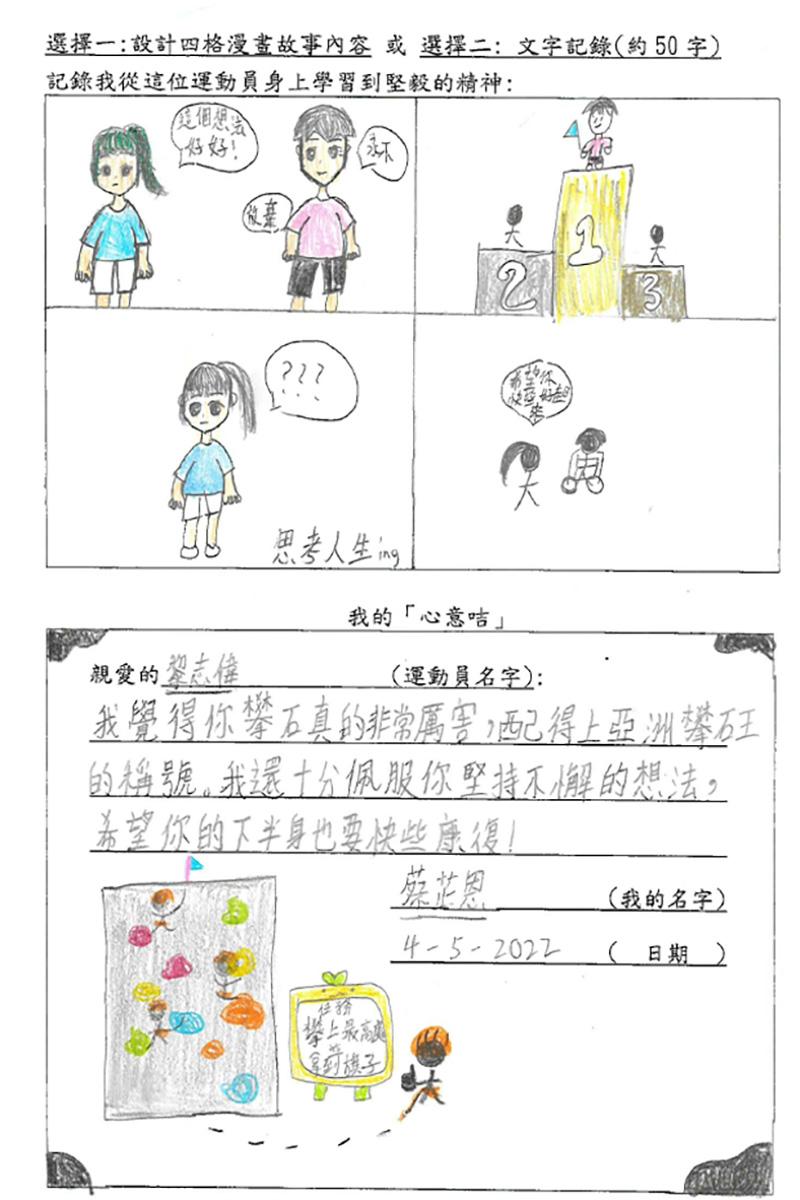 選擇一:設計四格漫畫故事內容 或 選擇二: 文字記錄(約50字)
記錄我從這位運動員身上學習到堅毅的精神:
這個想法
好好!
永不
放棄
1
2
3
???
思考人生ing
希望你
快些好起
來
我的「心意咭」
親愛的 黎志偉 (運動員名字):
我覺得你攀石真的非常厲害,配得上亞洲攀石王
的稱號。我還十分佩服你堅持不懈的想法,
希望你的下半身也要快些康復!
蔡芷恩 (我的名字)
4-5-2022 ( 日期 )
任務
攀上最高處
拿到旗子